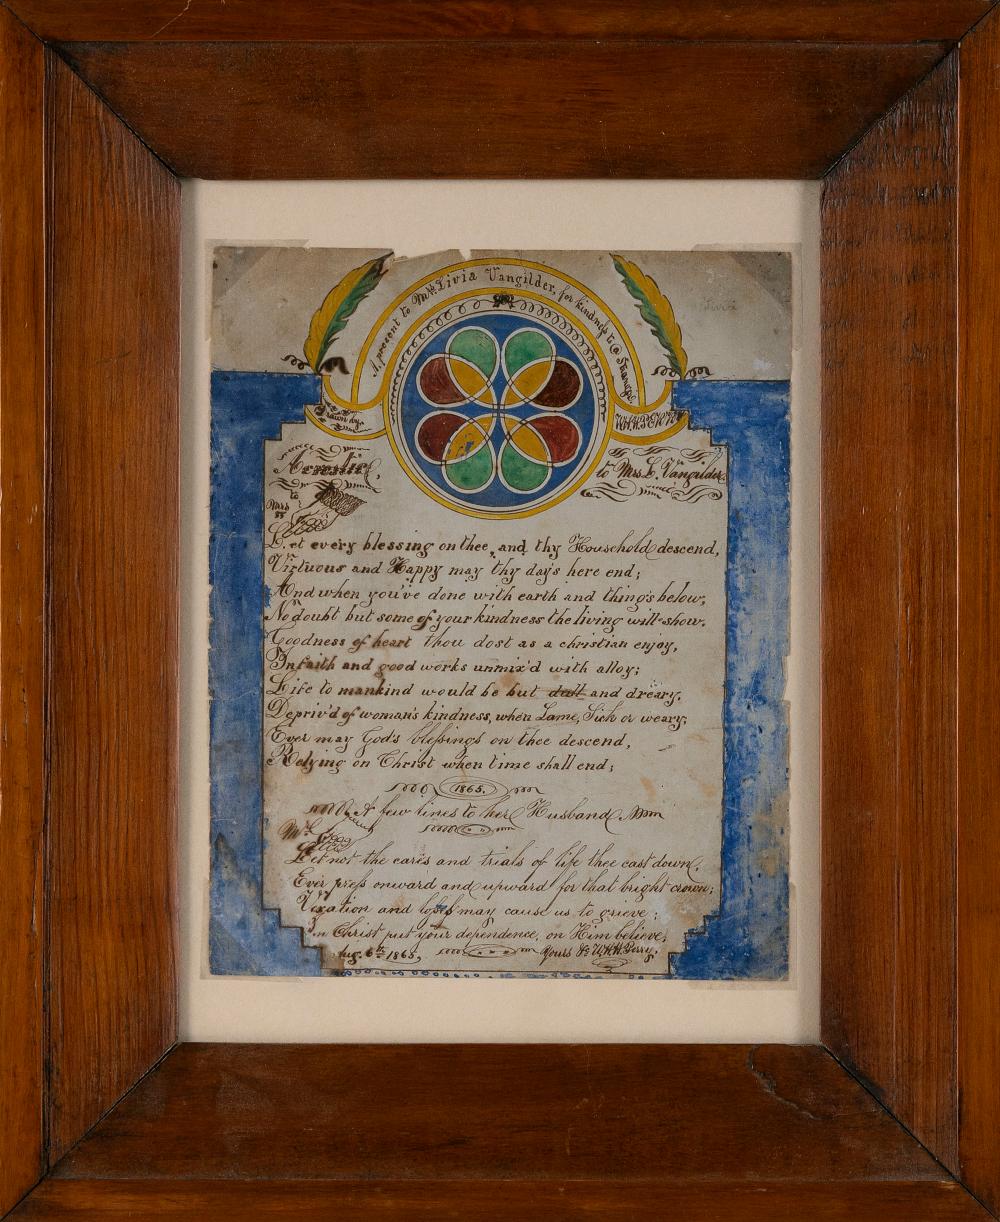 A present to Mrs. Livia Vangilder, for kindness to @ Stranger.
Drawn by
W.H.H. PERRY
Acrostic,
to Mrs. L. Vangilder.
to
Mrs
Let every blessing on thee, and thy Household descend,
Virtuous and Happy may thy day's here end;
And when you've done with earth and thing's below,
No doubt but some of your kindness the living will show.
Goodness of heart thou dost as a christian enjoy,
In faith and good works unmix'd with alloy;
Life to mankind would be but dull and dreary,
Depriv'd of woman's kindness, when Lame, Sick or weary;
Ever may God's blessings on thee descend,
Relying on Christ when time shall end;
1865.
A few lines to her Husband.
Mr.
Let not the care's and trials of life thee cast down,
Ever press onward and upward for that bright crown;
Vexation and losses may cause us to grieve;
In Christ put your dependence, on Him believe;
Aug. 6th 1865, Yours &c W.H.H. Perry.